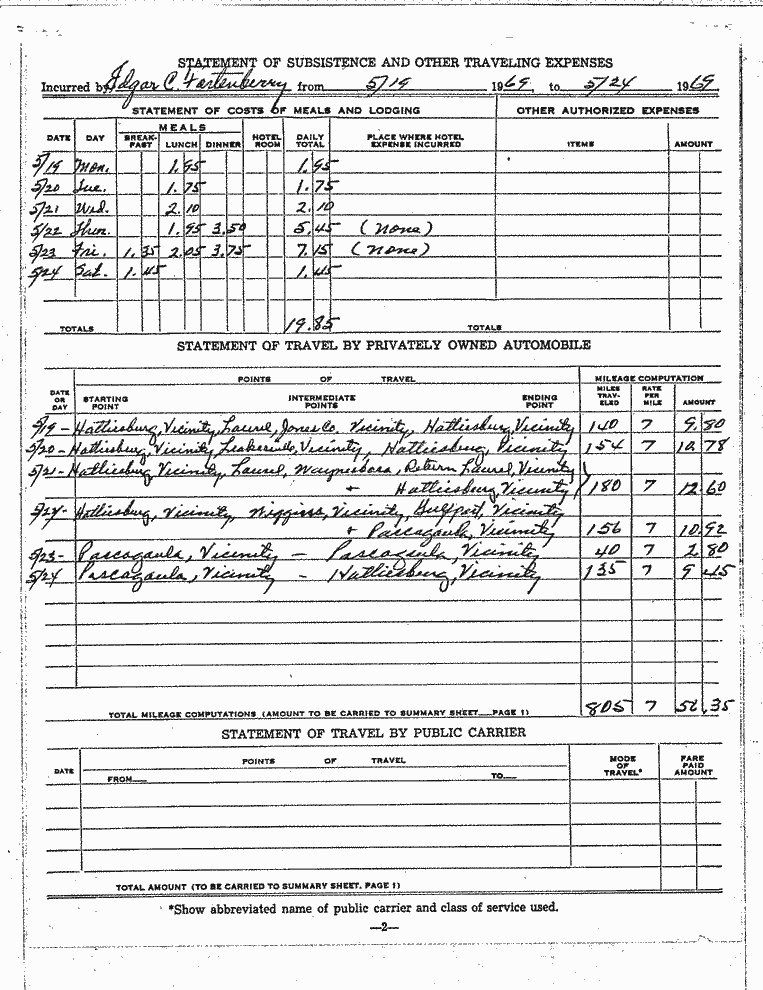 STATEMENT OF SUBSISTENCE AND OTHER TRAVELING EXPENSES
Incurred by Edgar C. Fortenberry from 5/19 1969 to 5/24 1969
STATEMENT OF COSTS OF MEALS AND LODGING OTHER AUTHORIZED EXPENSES
DATE DAY MEALS BREAK-FAST LUNCH DINNER HOTEL ROOM DAILY TOTAL PLACE WHERE HOTEL EXPENSE INCURRED ITEMS AMOUNT
5/19 Mon. 1.95 1.95
5/20 Tue. 1.75 1.75
5/21 Wed. 2.10 2.10
5/22 Thur. 1.95 3.50 5.45 (none)
5/23 Fri. 1.35 2.05 3.75 7.15 (none)
5/24 Sat. 1.45 1.45
TOTALS 19.85 TOTALS
STATEMENT OF TRAVEL BY PRIVATELY OWNED AUTOMOBILE
POINTS OF TRAVEL MILEAGE COMPUTATION
DATE OR DAY STARTING POINT INTERMEDIATE POINTS ENDING POINT MILES TRAV-ELED RATE PER MILE AMOUNT
5/19 - Hattiesburg, Vicinity, Laurel, Jones Co. Vicinity, Hattiesburg, Vicinity 140 7 9.80
5/20 - Hattiesburg, Vicinity, Vicinity, Hattiesburg, Vicinity 154 7 10.78
5/21 - Hattiesburg, Vicinity, Laurel, Waynesboro, Return Laurel, Vicinity
+ Hattiesburg, Vicinity 180 7 12.60
Hattiesburg, Vicinity, Wiggins, Vicinity, Gulfport, Vicinity
+ Pascagoula, Vicinity 156 7 10.92
5/23 - Pascagoula, Vicinity - Pascagoula, Vicinity 40 7 2.80
5/24 Pascagoula, Vicinity - Hattiesburg, Vicinity 135 7 9.45
TOTAL MILEAGE COMPUTATIONS (AMOUNT TO BE CARRIED TO SUMMARY SHEET—PAGE 1) 805 7 56.35
STATEMENT OF TRAVEL BY PUBLIC CARRIER
DATE POINTS OF TRAVEL MODE OF TRAVEL* FARE PAID AMOUNT
FROM— TO—
TOTAL AMOUNT (TO BE CARRIED TO SUMMARY SHEET, PAGE 1)
*Show abbreviated name of public carrier and class of service used.
—2—